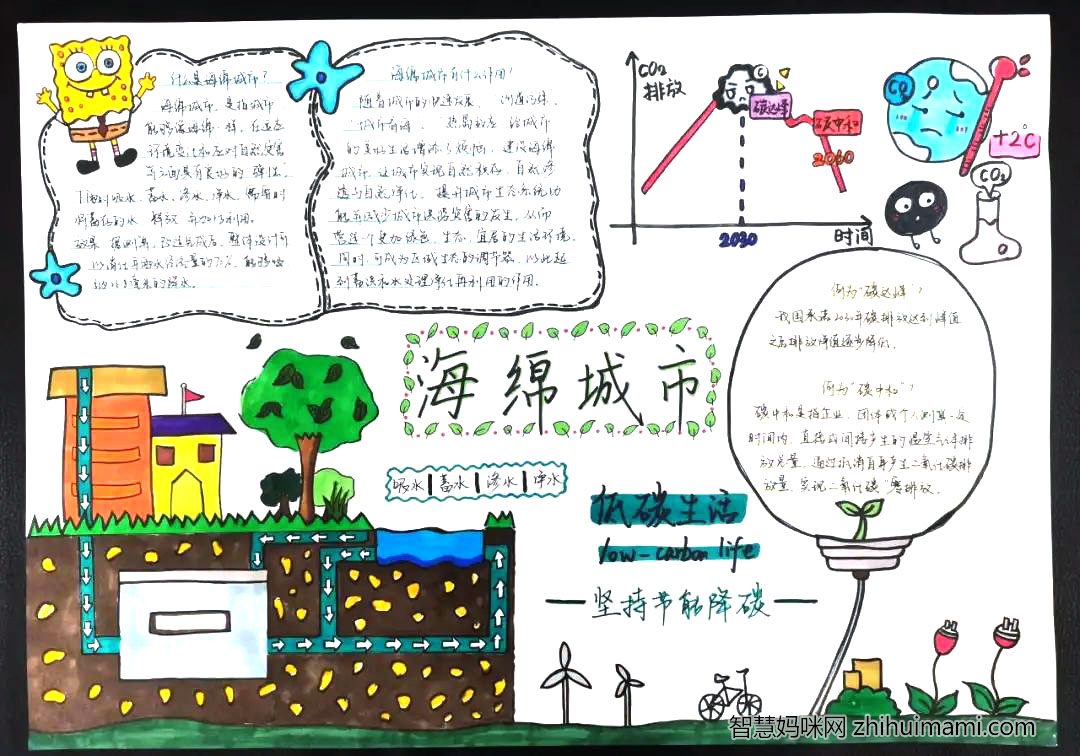 什么是海绵城市?
海绵城市,是指城市
能够像海绵一样,在适应
环境变化和应对自然灾害
等方面具有良好的"弹性"
下雨时吸水、蓄水、渗水、净水,需要时
将蓄存的水 释放 并加以利用。
海绵城市有什么作用?
随着城市的快速发展,
"城市看海","热岛效应"给城市
的美好生活增添了烦恼,建设海绵
城市,让城市实现自然积存,自然渗
透与自然净化,提升城市生态系统功
能并减少城市洪涝灾害的发生,从而
营造一个更加绿色、生态、宜居的生活环境
同时,可成为区域生态的调节器,以此起
到蓄洪和水处理净化再利用的作用。
CO₂
排放
C
碳达峰
碳中和
2060
2030
时间
CO₂
+2℃
CO₂
何为"碳达峰"?
我国承诺2030年碳排放达到峰值
之后排放峰值逐步降低。
何为"碳中和"?
碳中和是指企业、团体或个人测算一定
时间内,直接或间接产生的温室气体排
放总量,通过 消自身产生二氧化碳排
放量,实现二氧化碳"零排放。
海绵城市
吸水|蓄水|渗水|净水
低碳生活
low-carbon life
坚持节能降碳
智慧妈咪网 zhihuimami.com